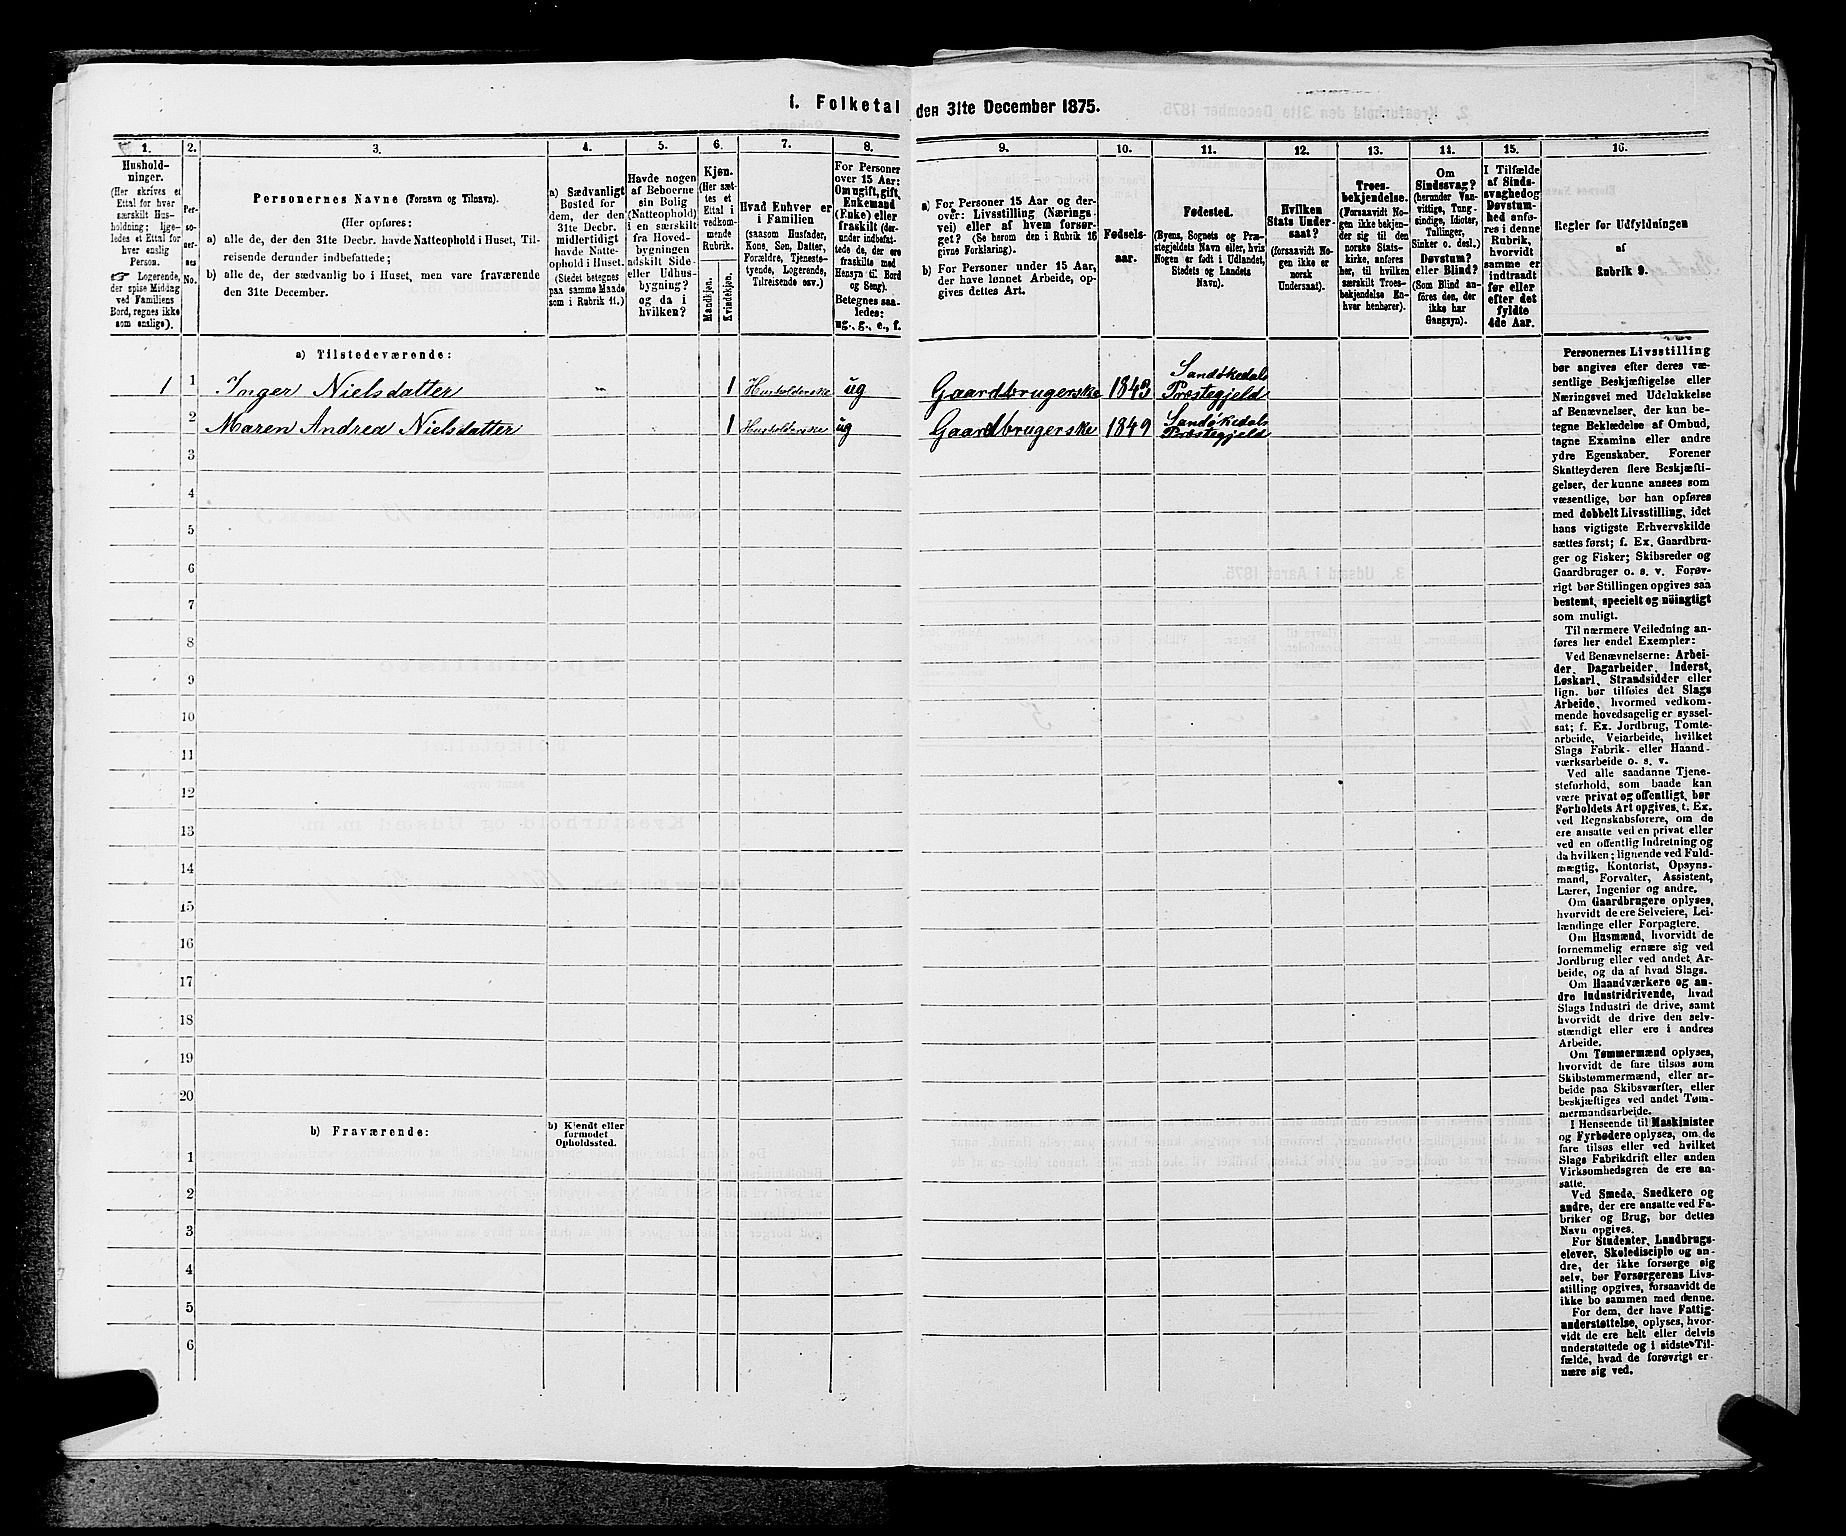 1. Folketal den 31te December 1875.
1.
Hushold-
ninger.
(Her skrives et
Ettal for hver
særskilt Hus-
holdning; lige-
ledes et Ettal for
hver enslig
Person.
Logerende,
der spise Middag
ved Familiens
Bord, regnes ikke
som enslige).
2.
Per-
so-
ner-
nes
No.
3.
Personernes Navne (Fornavn og Tilnavn).
(Her opføres:
a) alle de, der den 31te Decbr. havde Natteophold i Huset, Til-
reisende derunder indbefattede;
b) alle de, der sædvanlig bo i Huset, men vare fraværende
den 31te December.
4.
a) Sædvanligt
Bosted for
dem, der den
31te Decbr.
midlertidigt
havde Natte-
ophold i Huset.
(Stedet betegnes
paa samme Maade
som i Rubrik 11.)
5.
Havde nogen
af Beboerne
sin Bolig
(Natteophold)
i en særskilt
fra Hoved-
bygningen
adskilt Side-
eller Udhus-
bygning?
og da i
hvilken?
6.
Kjøn.
(Her sæt-
tes et
Ettal i
vedkom-
mende
Rubrik.
Mandkjøn.
Kvindekjøn.
7.
Hvad Enhver er
i Familien
(saasom Husfader,
Kone, Søn, Datter,
Forældre, Tjeneste-
tyende, Logerende,
Tilreisende osv.)
8.
For Personer
over 15 Aar:
Om ugift, gift,
Enkemand
(Enke) eller
fraskilt (der-
under indbefat-
tede de, der ere
fraskilte med
Hensyn til Bord
og Seng).
Betegnes saa-
ledes:
ug., g., e., f.
9.
a) For Personer 15 Aar og der-
over: Livsstilling (Nærings-
vei) eller af hvem forsør-
get? (Se herom den i Rubrik 16
givne Forklaring).
b) For Personer under 15 Aar,
der have lønnet Arbeide, op-
gives dettes Art.
10.
Fødsels-
aar.
11.
Fødested.
(Byens, Sognets og Præ-
stegjeldets Navn eller, hvis
Nogen er født i Udlandet,
Stedets og Landets
Navn).
12.
Hvilken
Stats Under-
saat?
(forsaavidt No-
gen ikke er
norsk
Undersaat).
13.
Troes-
bekjendelse.
(Forsaavidt No-
gen ikke bekjen-
der sig til den
norske Stats-
kirke, anføres
her, til hvilken
særskilt Troes-
bekjendelse En-
hver henhører).
14.
Om
Sindssvag?
(herunder Van-
vittige, Tung-
sindige, Idioter,
Tullinger,
Sinker o. desl.)
Døvstum?
eller Blind?
(Som Blind an-
føres den, der
ikke har
Gangsyn).
15.
I Tilfælde
af Sinds-
svaghed og
Døvstum-
hed anfø-
res i denne
Rubrik,
hvorvidt
samme er
indtraadt
før eller
efter det
fyldte
4de Aar.
16.
Regler for Udfyldningen
af
Rubrik 9.
a) Tilstedeværende:
1 1 Inger Nielsdatter 1 Husholderske ug Gaardbrugerske 1843 Sandøkedals Præstegjeld
2 Maren Andrea Nielsdatter 1 Husholderske ug Gaardbrugerske 1849 Sandøkedals Præstegjeld
3
4
5
6
7
8
9
10
11
12
13
14
15
16
17
18
19
20
b) Fraværende:
b) Kjendt eller
formodet
Opholdssted.
1
2
3
4
5
6
Personernes Livsstilling
bør angives efter deres væ-
sentlige Beskjæftigelse eller
Næringsvei med Udelukkelse
af Benævnelser, der kun be-
tegne Beklædelse af Ombud,
tagne Examina eller andre
ydre Egenskaber. Forener
Skatteyderen flere Beskjæfti-
gelser, der kunne ansees som
væsentlige, bør han opføres
med dobbelt Livsstilling, idet
hans vigtigste Erhvervskilde
sættes først; f. Ex. Gaardbru-
ger og Fisker; Skibsreder og
Gaardbruger o. s. v. Forøv-
rigt bør Stillingen opgives saa
bestemt, specielt og nøiagtigt
som muligt.
Til nærmere Veiledning an-
føres her endel Exempler:
Ved Benævnelserne: Arbei-
der, Dagarbeider, Inderst,
Løskarl, Strandsidder eller
lign. bør tilføies det Slags
Arbeide, hvormed vedkom-
mende hovedsagelig er syssel-
sat; f. Ex. Jordbrug, Tomte-
arbeide, Veiarbeide, hvilket
Slags Fabrik- eller Haand-
værksarbeide o. s. v.
Ved alle saadanne Tjene-
steforhold, som baade kan
være privat og offentligt, bør
Forholdets Art opgives, t. Ex.
ved Regnskabsførere, om de
ere ansatte ved en privat eller
ved en offentlig Indretning og
da hvilken; lignende ved Fuld-
mægtig, Kontorist, Opsyns-
mand, Forvalter, Assistent,
Lærer, Ingeniør og andre.
Om Gaardbrugere oplyses,
hvorvidt de ere Selveiere, Lei-
lændinge eller Forpagtere.
Om Husmænd, hvorvidt de
fornemmelig ernære sig ved
Jordbrug eller ved andet Ar-
beide, og da af hvad Slags.
Om Haandværkere og an-
dre Industridrivende, hvad
Slags Industri de drive, samt
hvorvidt de drive den selv-
stændigt eller ere i andres
Arbeide.
Om Tømmermænd oplyses,
hvorvidt de fare tilsøs som
Skibstømmermænd, eller ar-
beide paa Skibsværfter, eller
beskjæftiges ved andet Tøm-
mermandsarbeide.
I Henseende til Maskinister
og Fyrbødere oplyses, om de
fare tilsøs eller ved hvilket
Slags Fabrikdrift eller anden
Virksomhedsgren de ere an-
satte.
Ved Smede, Snedkere og
andre, der ere ansatte ved Fa-
briker og Brug, bør dettes
Navn opgives.
For Studenter, Landbrugs-
elever, Skoledisciple og an-
dre, der ikke forsørge sig
selv, bør Forsørgerens Livs-
stilling opgives, forsaavidt de
ikke bo sammen med denne.
For dem, der have Fattig-
understøttelse, oplyses, hvor-
vidt de ere helt eller delvis
understøttede og i sidste Til-
fælde, hvad de forøvrigt er-
nære sig ved.